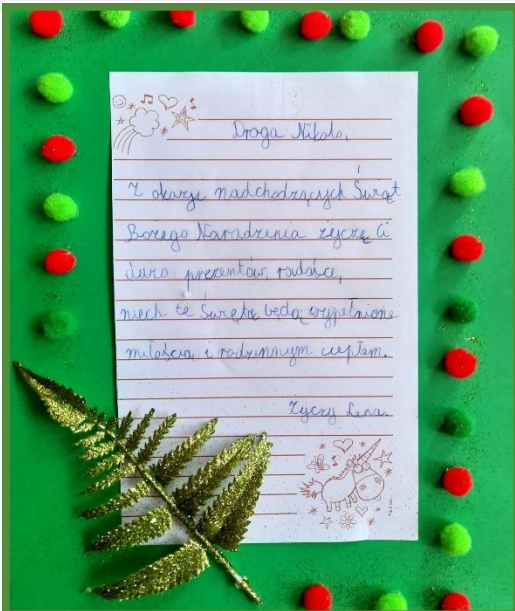 Droga Nikolo,
Z okazji nadchodzących Świąt
Bożego Narodzenia życzę Ci
dużo prezentów, radości,
niech te Święta będą wypełnione
miłością i rodzinnym ciepłem.
Życzy Lena.